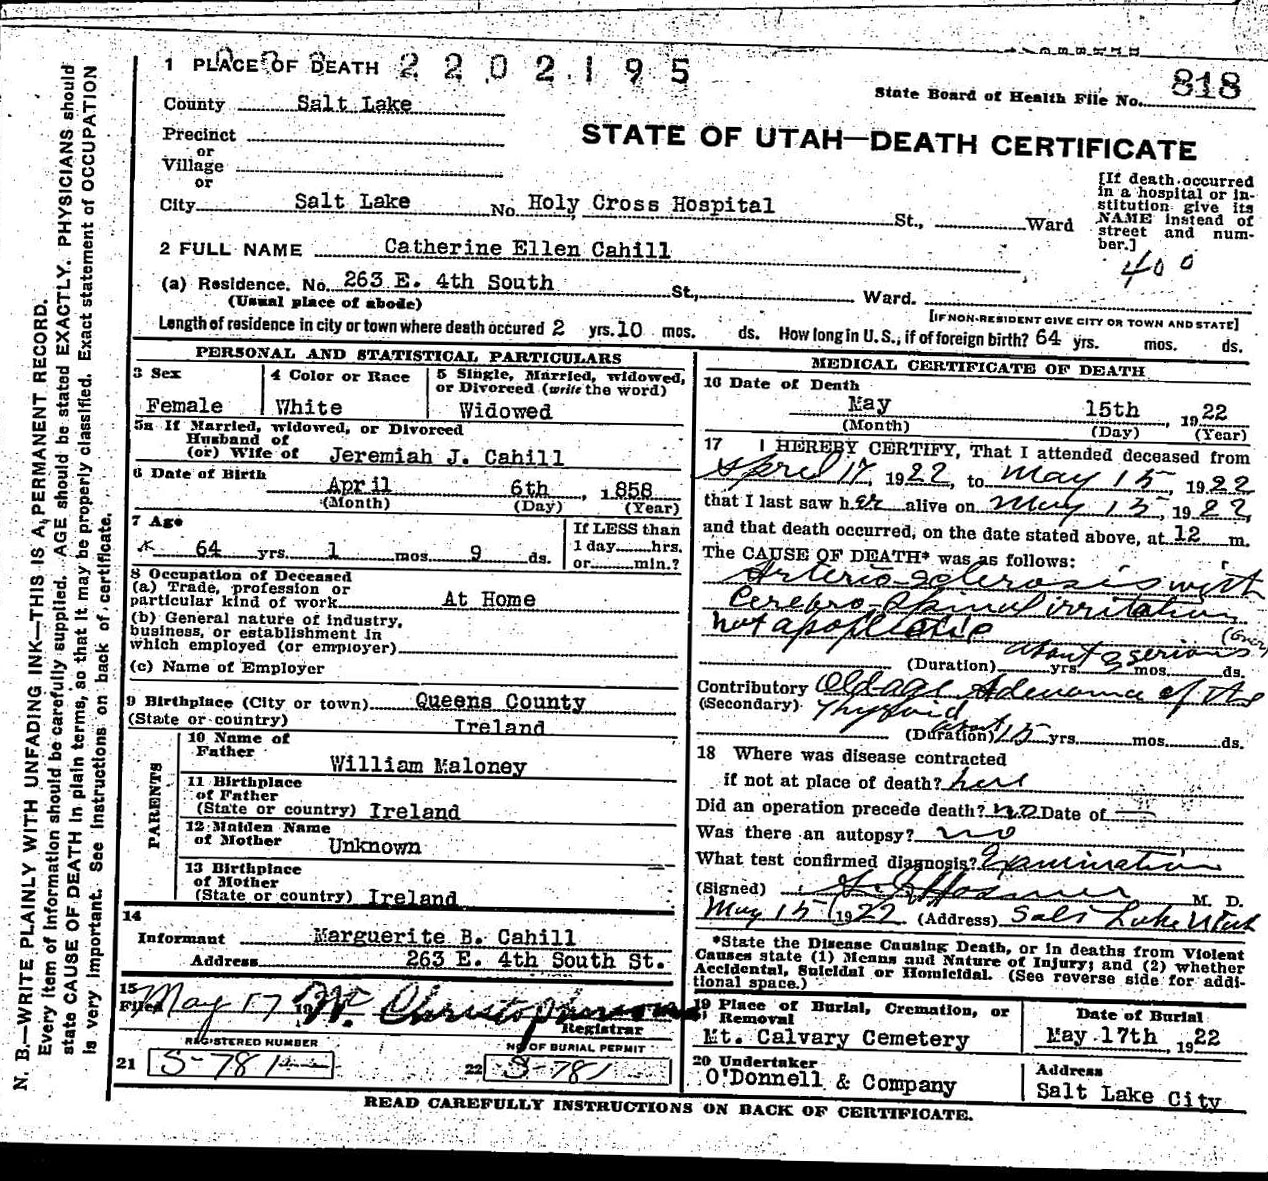 1 PLACE OF DEATH 2202195
State Board of Health File No. 818
County Salt Lake
STATE OF UTAH—DEATH CERTIFICATE
Precinct
or
Village
or
City Salt Lake No. Holy Cross Hospital St., Ward
[If death occurred
in a hospital or in-
stitution give its
NAME instead of
street and num-
ber.]
400
2 FULL NAME Catherine Ellen Cahill
(a) Residence. No. 263 E. 4th South St., Ward.
(Usual place of abode)
[IF NON-RESIDENT GIVE CITY OR TOWN AND STATE]
Length of residence in city or town where death occured 2 yrs. 10 mos. ds. How long in U. S., if of foreign birth? 64 yrs. mos. ds.
PERSONAL AND STATISTICAL PARTICULARS
3 Sex
Female
4 Color or Race
White
5 Single, Married, widowed,
or Divorced (write the word)
Widowed
5a If Married, widowed, or Divorced
Husband of
(or) Wife of Jeremiah J. Cahill
6 Date of Birth
April 6th, 1858
(Month) (Day) (Year)
7 Age
64 yrs. 1 mos. 9 ds.
If LESS than
1 day hrs.
or min.?
8 Occupation of Deceased
(a) Trade, profession or
particular kind of work At Home
(b) General nature of industry,
business, or establishment in
which employed (or employer)
(c) Name of Employer
9 Birthplace (City or town) Queens County
(State or country) Ireland
PARENTS
10 Name of
Father William Maloney
11 Birthplace
of Father
(State or country) Ireland
12 Maiden Name
of Mother Unknown
13 Birthplace
of Mother
(State or country) Ireland
14
Informant Marguerite B. Cahill
Address 263 E. 4th South St.
15
Filed May 17 19 W. Christopherson
Registrar
REGISTERED NUMBER
21 S-781
NO OF BURIAL PERMIT
22 S-781
MEDICAL CERTIFICATE OF DEATH
16 Date of Death
May 15th, 1922
(Month) (Day) (Year)
17 I HEREBY CERTIFY, That I attended deceased from
April 17, 1922, to May 15, 1922
that I last saw her alive on May 15, 1922,
and that death occurred, on the date stated above, at 12 m.
The CAUSE OF DEATH* was as follows:
Arterio-sclerosis with
Cerebro-Spinal irritation
not apoplectic
about 3 serious
(Duration) yrs. mos. ds.
Contributory Old age Adenoma of the
(Secondary) Thyroid
(Duration) about 15 yrs. mos. ds.
18 Where was disease contracted
if not at place of death? here
Did an operation precede death? no Date of —
Was there an autopsy? no
What test confirmed diagnosis? Examination
(Signed) M. D.
May 15, 1922 (Address) Salt Lake Utah
*State the Disease Causing Death, or in deaths from Violent
Causes state (1) Means and Nature of Injury; and (2) whether
Accidental, Suicidal or Homicidal. (See reverse side for addi-
tional space.)
19 Place of Burial, Cremation, or
Removal
Mt. Calvary Cemetery
Date of Burial
May 17th, 1922
20 Undertaker
O'Donnell & Company
Address
Salt Lake City
READ CAREFULLY INSTRUCTIONS ON BACK OF CERTIFICATE.
N. B.—WRITE PLAINLY WITH UNFADING INK—THIS IS A PERMANENT RECORD.
Every item of information should be carefully supplied. AGE should be stated EXACTLY. PHYSICIANS should
state CAUSE OF DEATH in plain terms, so that it may be properly classified. Exact statement of OCCUPATION
is very important. See instructions on back of certificate.